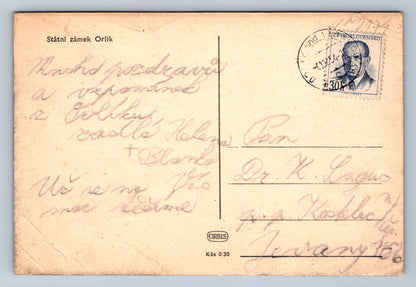 Státní zámek Orlík
Mnoho pozdravů
a vzpomínek
z Orlíku
zasílá Helena
+ Blanka
Už se na Vás
moc těšíme
ORBIS
Kčs 0·30
ČESKOSLOVENSKO
Pan
Dr. K. Lagus
p. p. Kostelec
Jevany